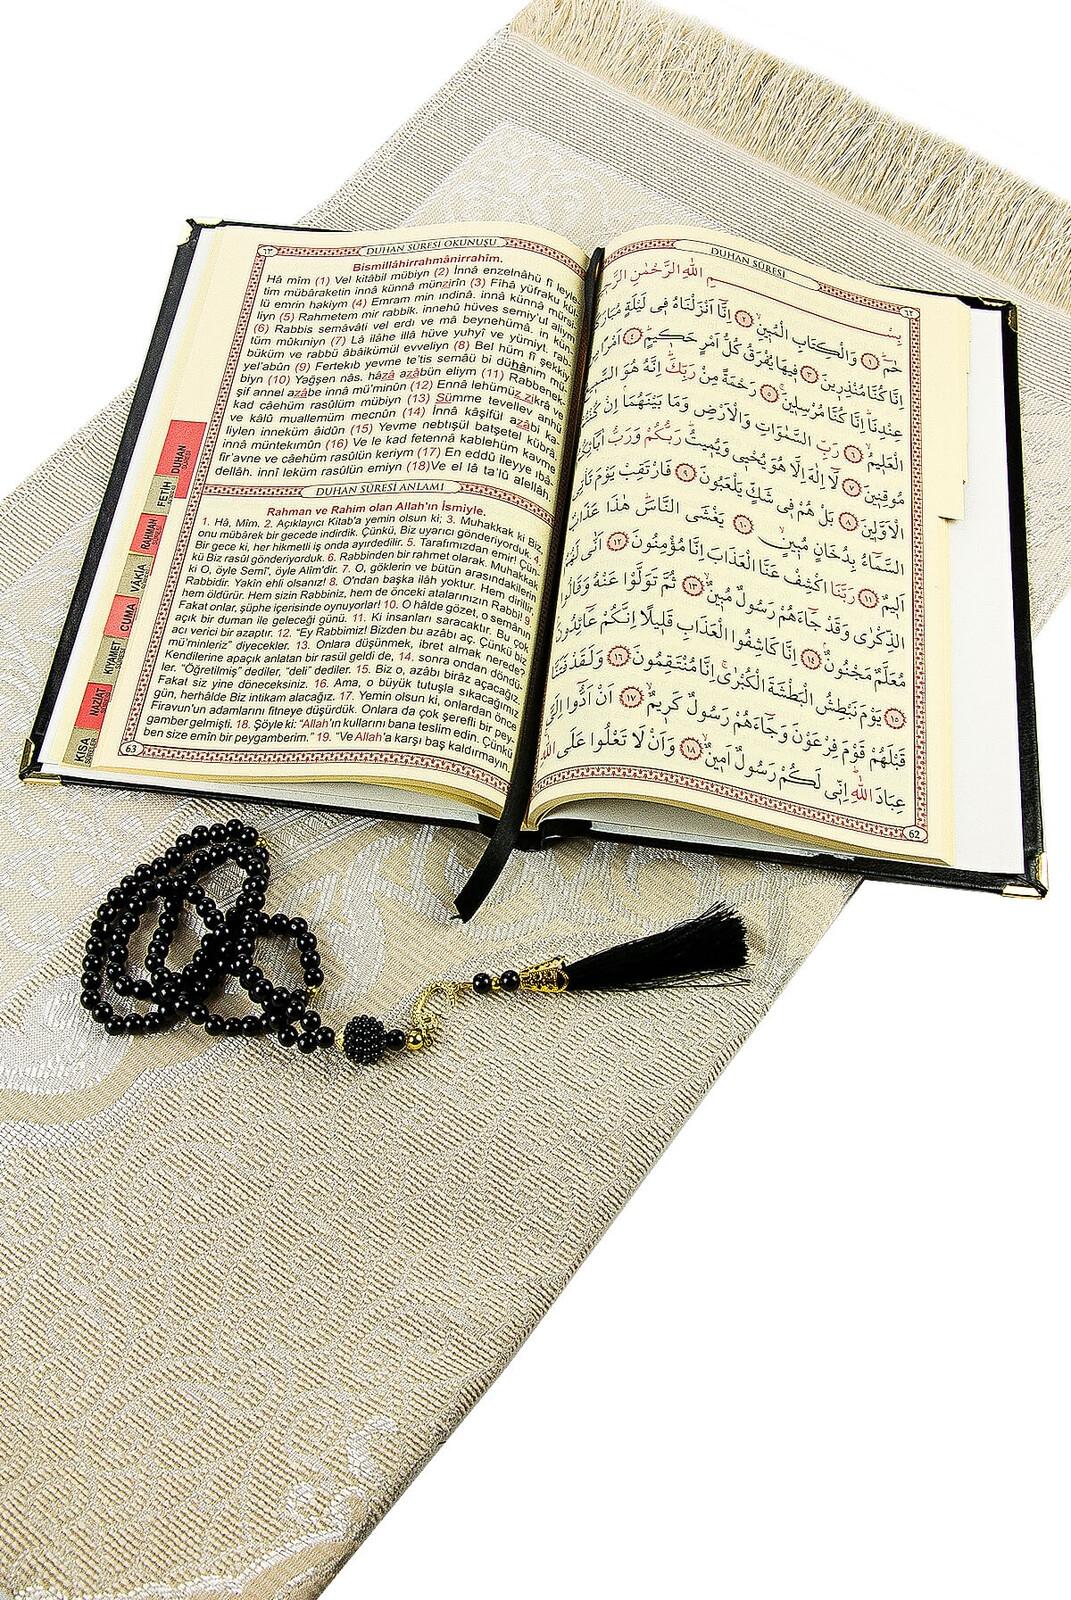 ٦٣
DUHAN SÛRESİ OKUNUŞU
Bismillâhirrahmânirrahîm.
Hâ mîm (1) Vel kitâbil mübiyn (2) İnnâ enzelnâhü fî leyle-
tim mübâraketin innâ künnâ münzirîn (3) Fîhâ yüfraku kül-
lü emrin hakiym (4) Emram min ındinâ. innâ künnâ mürsi-
liyn (5) Rahmetem mir rabbik. innehû hüves semiy'ul aliym
(6) Rabbis semâvâti vel erdı ve mâ beynehümâ. in kün-
tüm mûkıniyn (7) Lâ ilâhe illâ hüve yuhyî ve yümiyt. rab-
büküm ve rabbü âbâikümül evveliyn (8) Bel hüm fî şekkiy
yel'abûn (9) Fertekıb yevme te'tis semâü bi dühânim mü-
biyn (10) Yağşen nâs. hâzâ azâbün eliym (11) Rabbenek-
şif annel azâbe innâ mü'minûn (12) Ennâ lehümüz zikrâ ve
kad câehüm rasûlüm mübiyn (13) Sümme tevellev anhü
ve kâlû muallemüm mecnûn (14) İnnâ kâşifül azâbi ka-
liylen inneküm âidûn (15) Yevme nebtışül batşetel kübrâ,
innâ müntekımûn (16) Ve le kad fetennâ kablehüm kavme
fir'avne ve câehüm rasûlün keriym (17) En eddû ileyye ıbâ-
dellâh. innî leküm rasûlün emiyn (18)Ve el lâ ta'lû alellâh,
DUHAN SÛRESİ ANLAMI
Rahman ve Rahim olan Allah'ın İsmiyle.
1. Hâ, Mîm. 2. Açıklayıcı Kitab'a yemin olsun ki; 3. Muhakkak ki Biz,
onu mübârek bir gecede indirdik. Çünkü, Biz uyarıcı gönderiyorduk. 4.
Bir gece ki, her hikmetli iş onda ayırdedilir. 5. Tarafımızdan emir! Çün-
kü Biz rasûl gönderiyorduk. 6. Rabbinden bir rahmet olarak. Muhakkak
ki O, öyle Semî', öyle Alîm'dir. 7. O, göklerin ve bütün arasındakilerin
Rabbidir. Yakîn ehli olsanız! 8. O'ndan başka ilâh yoktur. Hem diriltir,
hem öldürür. Hem sizin Rabbiniz, hem de önceki atalarınızın Rabbi! 9.
Fakat onlar, şüphe içerisinde oynuyorlar! 10. O hâlde gözet, o semânın
açık bir duman ile geleceği günü. 11. Ki insanları saracaktır. Bu çok
acı verici bir azaptır. 12. "Ey Rabbimiz! Bizden bu azâbı aç. Çünkü biz
mü'minleriz" diyecekler. 13. Onlara düşünmek, ibret almak nerede?
Kendilerine apaçık anlatan bir rasûl geldi de, 14. sonra ondan döndü-
ler. "Öğretilmiş" dediler, "deli" dediler. 15. Biz o, azâbı birâz açacağız.
Fakat siz yine döneceksiniz. 16. Ama, o büyük tutuşla sıkacağımız
gün, herhâlde Biz intikam alacağız. 17. Yemin olsun ki, onlardan önce
Firavun'un adamlarını fitneye düşürdük. Onlara da çok şerefli bir pey-
gamber gelmişti. 18. Şöyle ki: "Allah'ın kullarını bana teslim edin. Çünkü
ben size emîn bir peygamberim." 19. "Ve Allah'a karşı baş kaldırmayın.
63
DUHAN
SÛRESİ
FETİH
RAHMAN
VÂKIA
CUMA
KIYAMET
NAZİAT
KISA
SÛRELER
DUHAN SÛRESİ
٦٢
بِسْــــمِ اللّٰهِ الرَّحْمٰنِ
حٰمٓ ﴿١﴾ وَالْكِتَابِ الْمُبٖينِ ﴿٢﴾ اِنَّٓا اَنْزَلْنَاهُ فٖي لَيْلَةٍ
اِنَّا كُنَّا مُنْذِرٖينَ ﴿٣﴾ فٖيهَا يُفْرَقُ كُلُّ اَمْرٍ حَكٖيمٍ ﴿٤﴾
عِنْدِنَا اِنَّا كُنَّا مُرْسِلٖينَ ﴿٥﴾ رَحْمَةً مِنْ رَبِّكَ اِنَّهُ هُوَ
الْعَلٖيمُ ﴿٦﴾ رَبِّ السَّمٰوَاتِ وَالْاَرْضِ وَمَا بَيْنَهُمَا اِنْ
مُوقِنٖينَ ﴿٧﴾ لَٓا اِلٰهَ اِلَّا هُوَ يُحْيٖي وَيُمٖيتُ رَبُّكُمْ وَرَبُّ
الْاَوَّلٖينَ ﴿٨﴾ بَلْ هُمْ فٖي شَكٍّ يَلْعَبُونَ ﴿٩﴾ فَارْتَقِبْ يَوْمَ
السَّمَٓاءُ بِدُخَانٍ مُبٖينٍ ﴿١٠﴾ يَغْشَى النَّاسَ هٰذَا عَذَابٌ
اَلٖيمٌ ﴿١١﴾ رَبَّنَا اكْشِفْ عَنَّا الْعَذَابَ اِنَّا مُؤْمِنُونَ ﴿١٢﴾ اَنّٰى
الذِّكْرٰى وَقَدْ جَٓاءَهُمْ رَسُولٌ مُبٖينٌ ﴿١٣﴾ ثُمَّ تَوَلَّوْا عَنْهُ وَقَالُوا
مُعَلَّمٌ مَجْنُونٌ ﴿١٤﴾ اِنَّا كَاشِفُوا الْعَذَابِ قَلٖيلًا اِنَّكُمْ عَٓائِدُونَ
﴿١٥﴾ يَوْمَ نَبْطِشُ الْبَطْشَةَ الْكُبْرٰى اِنَّا مُنْتَقِمُونَ ﴿١٦﴾ وَلَقَدْ فَتَنَّا
قَبْلَهُمْ قَوْمَ فِرْعَوْنَ وَجَٓاءَهُمْ رَسُولٌ كَرٖيمٌ ﴿١٧﴾ اَنْ اَدُّٓوا اِلَيَّ
عِبَادَ اللّٰهِ اِنّٖي لَكُمْ رَسُولٌ اَمٖينٌ ﴿١٨﴾ وَاَنْ لَا تَعْلُوا عَلَى اللّٰهِ
62